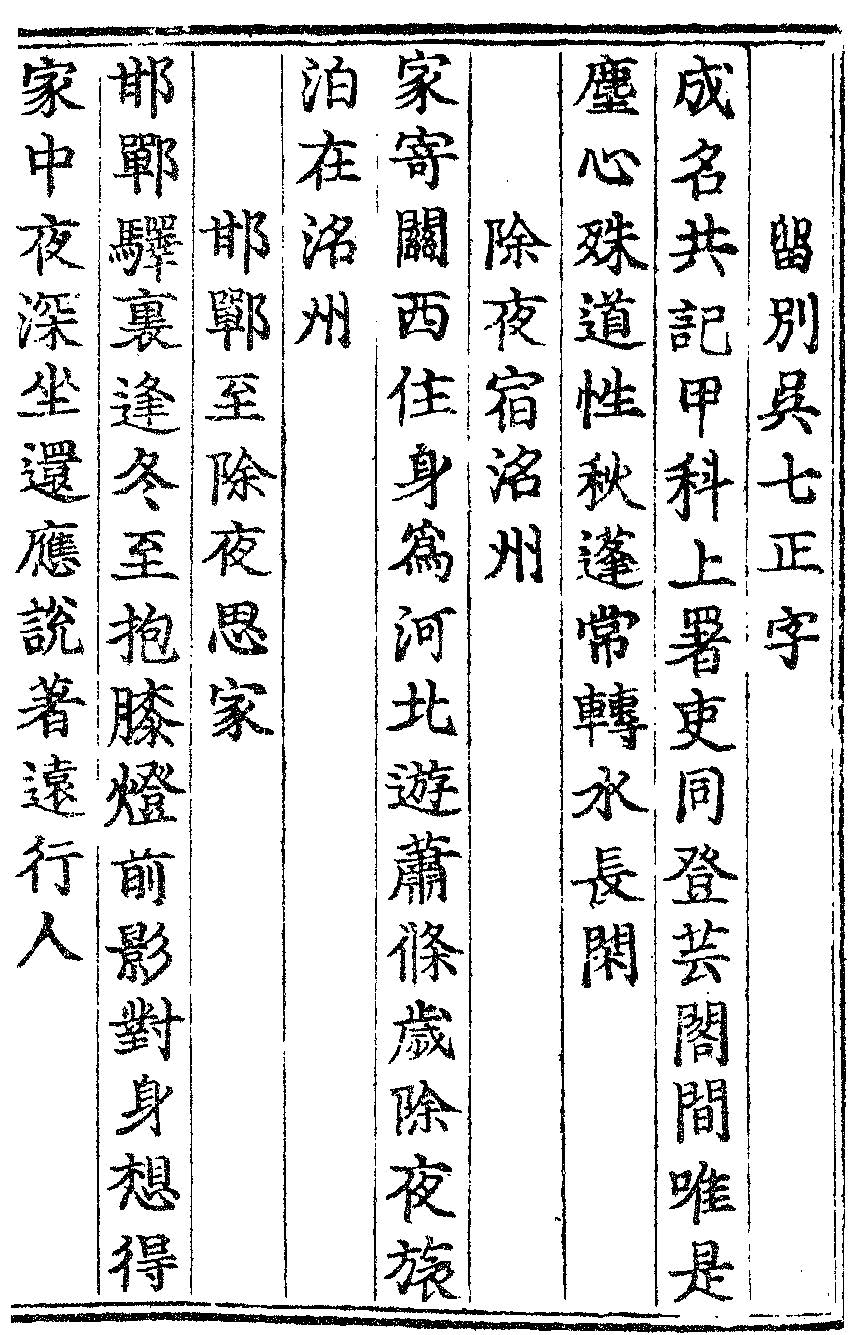 留別吳七正字
成名共記甲科上署吏同登芸閣間唯是
塵心殊道性秋蓬常轉水長閑
除夜宿洺州
家寄關西住身爲河北遊蕭條歲除夜旅
泊在洺州
邯鄲至除夜思家
邯鄲驛裏逢冬至抱膝燈前影對身想得
家中夜深坐還應說著遠行人